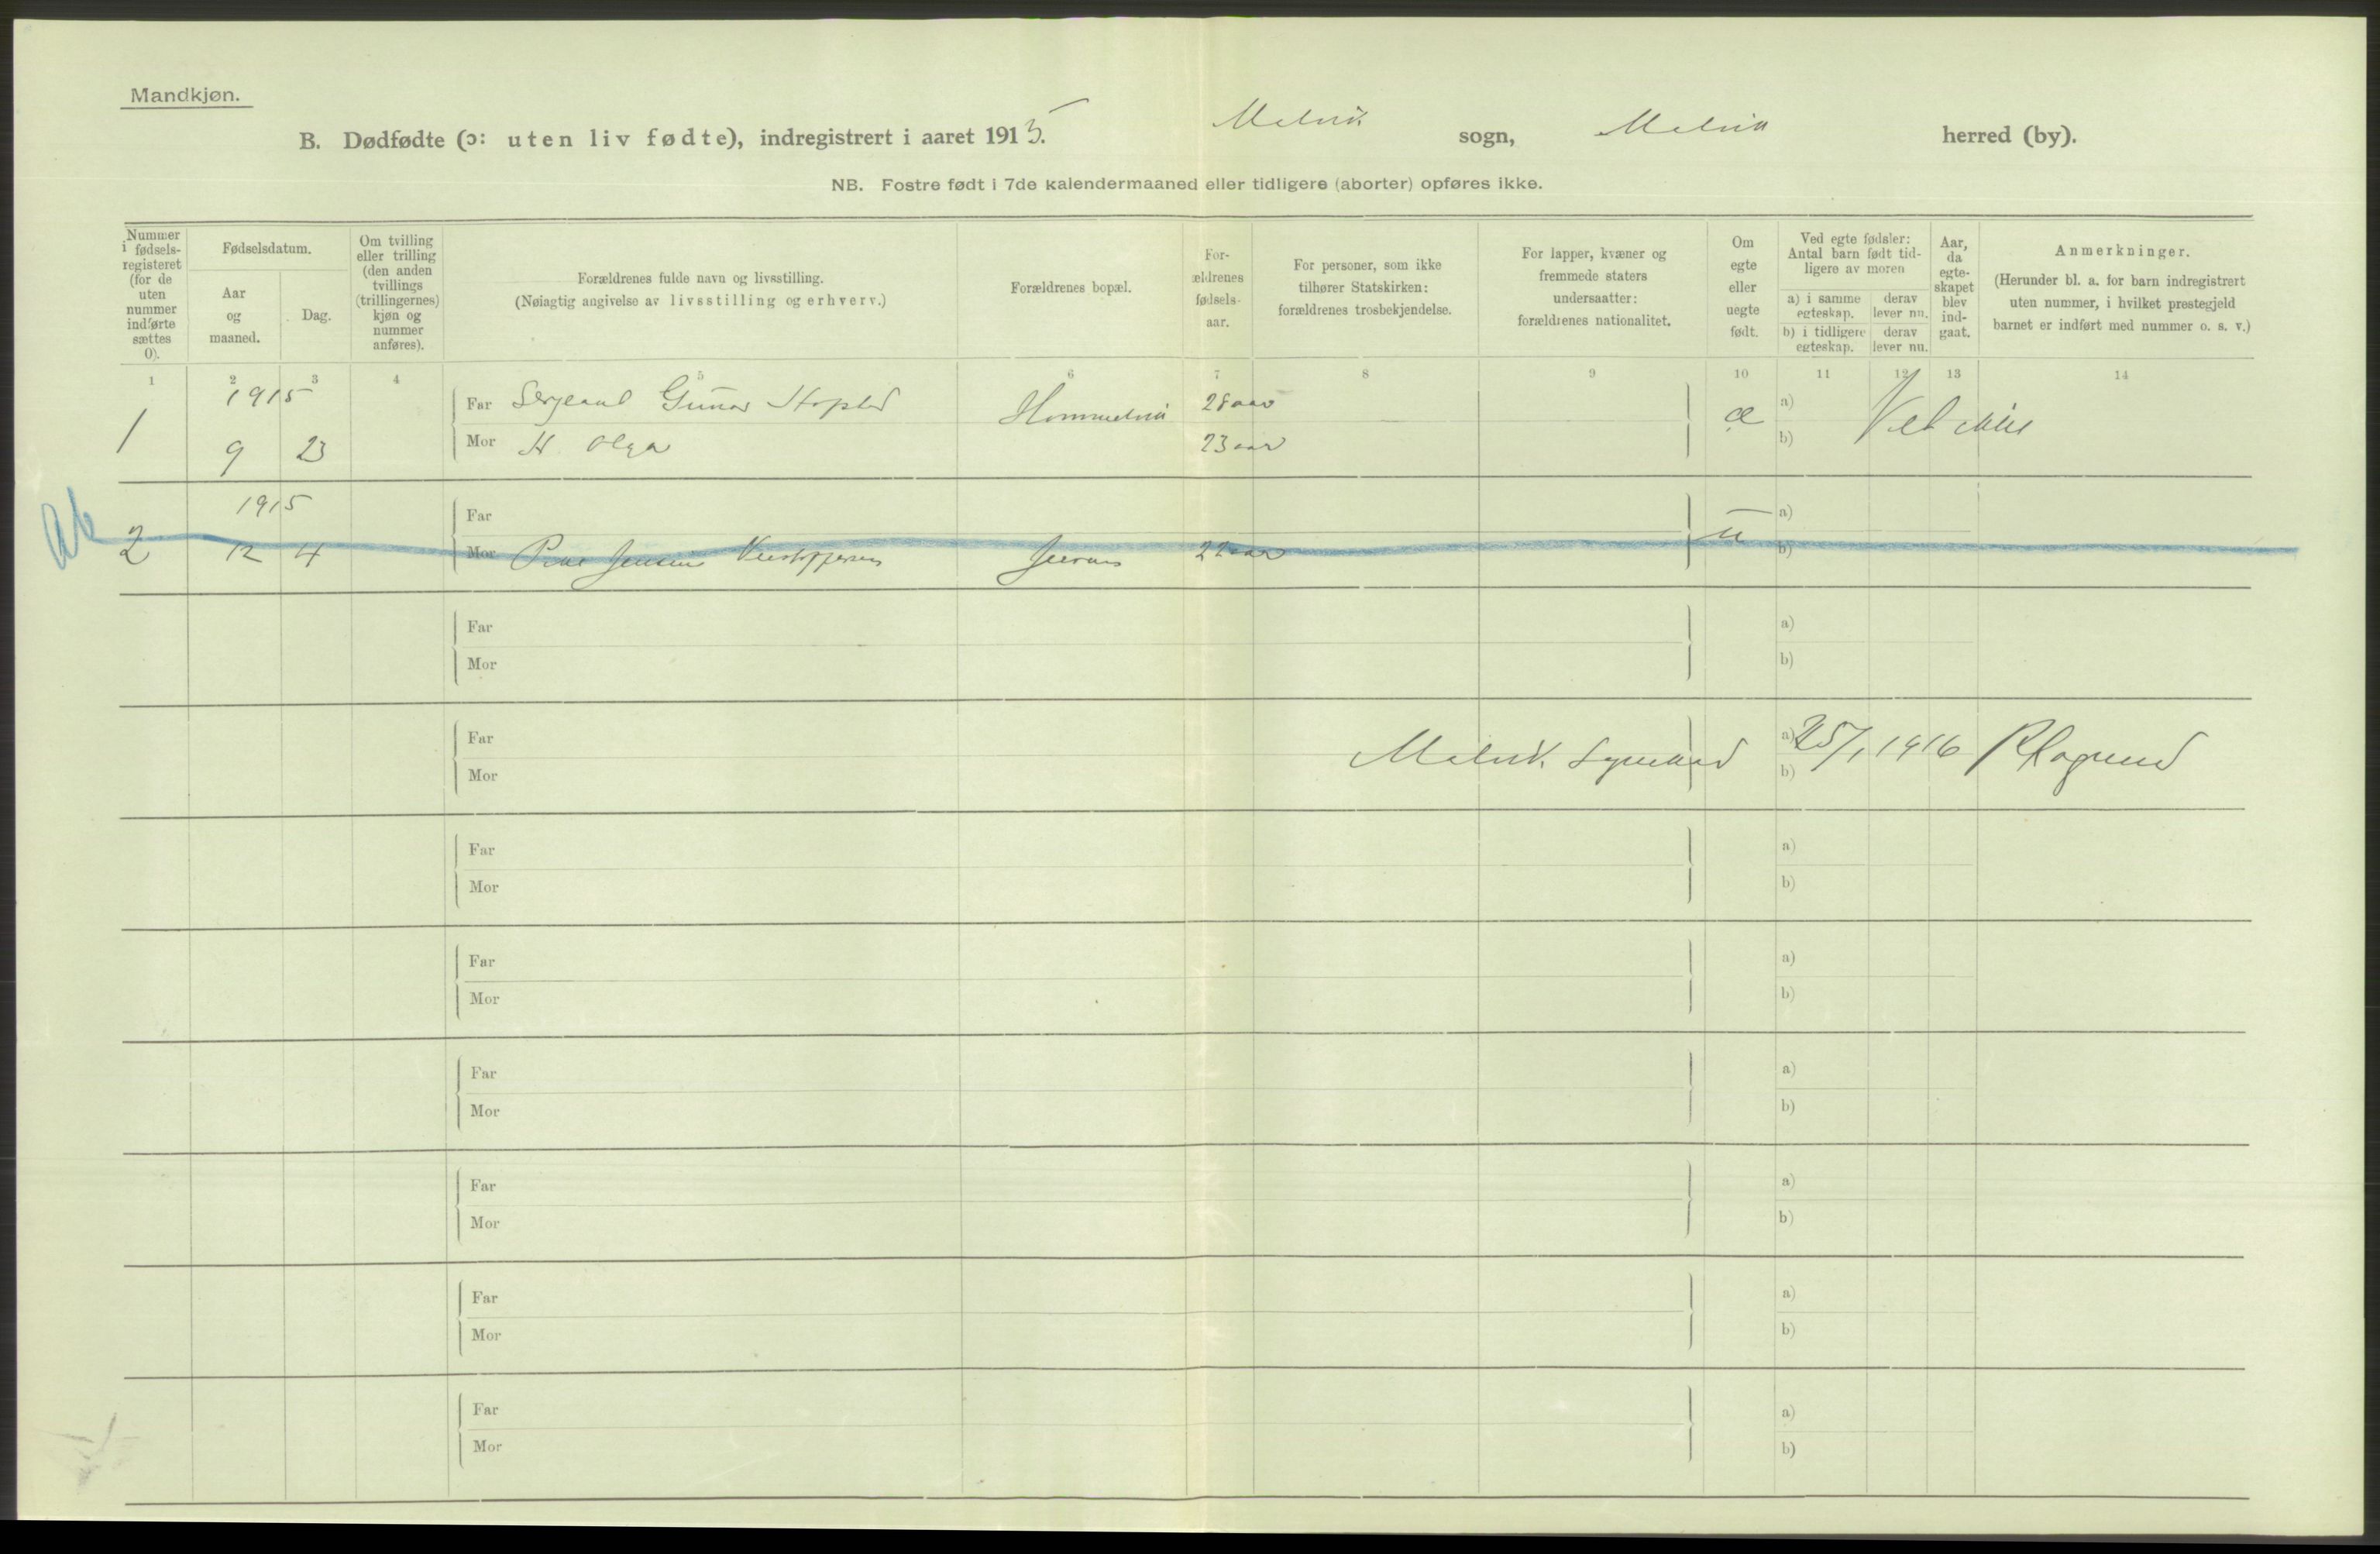 Mandkjøn.
B. Dødfødte (ɔ: uten liv fødte), indregistrert i aaret 1915. Malvik sogn, Malvik herred (by).
NB. Fostre født i 7de kalendermaaned eller tidligere (aborter) opføres ikke.
Nummer i fødsels-registeret (for de uten nummer indførte sættes 0).
Fødselsdatum.
Aar og maaned.
Dag.
Om tvilling eller trilling (den anden tvillings (trillingernes) kjøn og nummer anføres).
Forældrenes fulde navn og livsstilling.
(Nøiagtig angivelse av livsstilling og erhverv.)
Forældrenes bopæl.
For-ældrenes fødsels-aar.
For personer, som ikke tilhører Statskirken: forældrenes trosbekjendelse.
For lapper, kvæner og fremmede staters undersaatter: forældrenes nationalitet.
Om egte eller uegte født.
Ved egte fødsler: Antal barn født tid-ligere av moren
a) i samme egteskap. derav lever nu.
b) i tidligere egteskap. derav lever nu.
Aar, da egte-skapet blev ind-gaat.
Anmerkninger.
(Herunder bl. a. for barn indregistrert uten nummer, i hvilket prestegjeld barnet er indført med nummer o. s. v.)
1 2 3 4 5 6 7 8 9 10 11 12 13 14
1915
1 9 23
Far Sergeant Gunnar Hopstad Hommelvik 28 aar æ a)
Mor H. Olga 23 aar b)
1915
Far a)
2 12 4 Mor 22 aar u b)
Far a)
Mor b)
Far a)
Mor b)
Malvik 25/1 1916
Far a)
Mor b)
Far a)
Mor b)
Far a)
Mor b)
Far a)
Mor b)
Far a)
Mor b)
Far a)
Mor b)